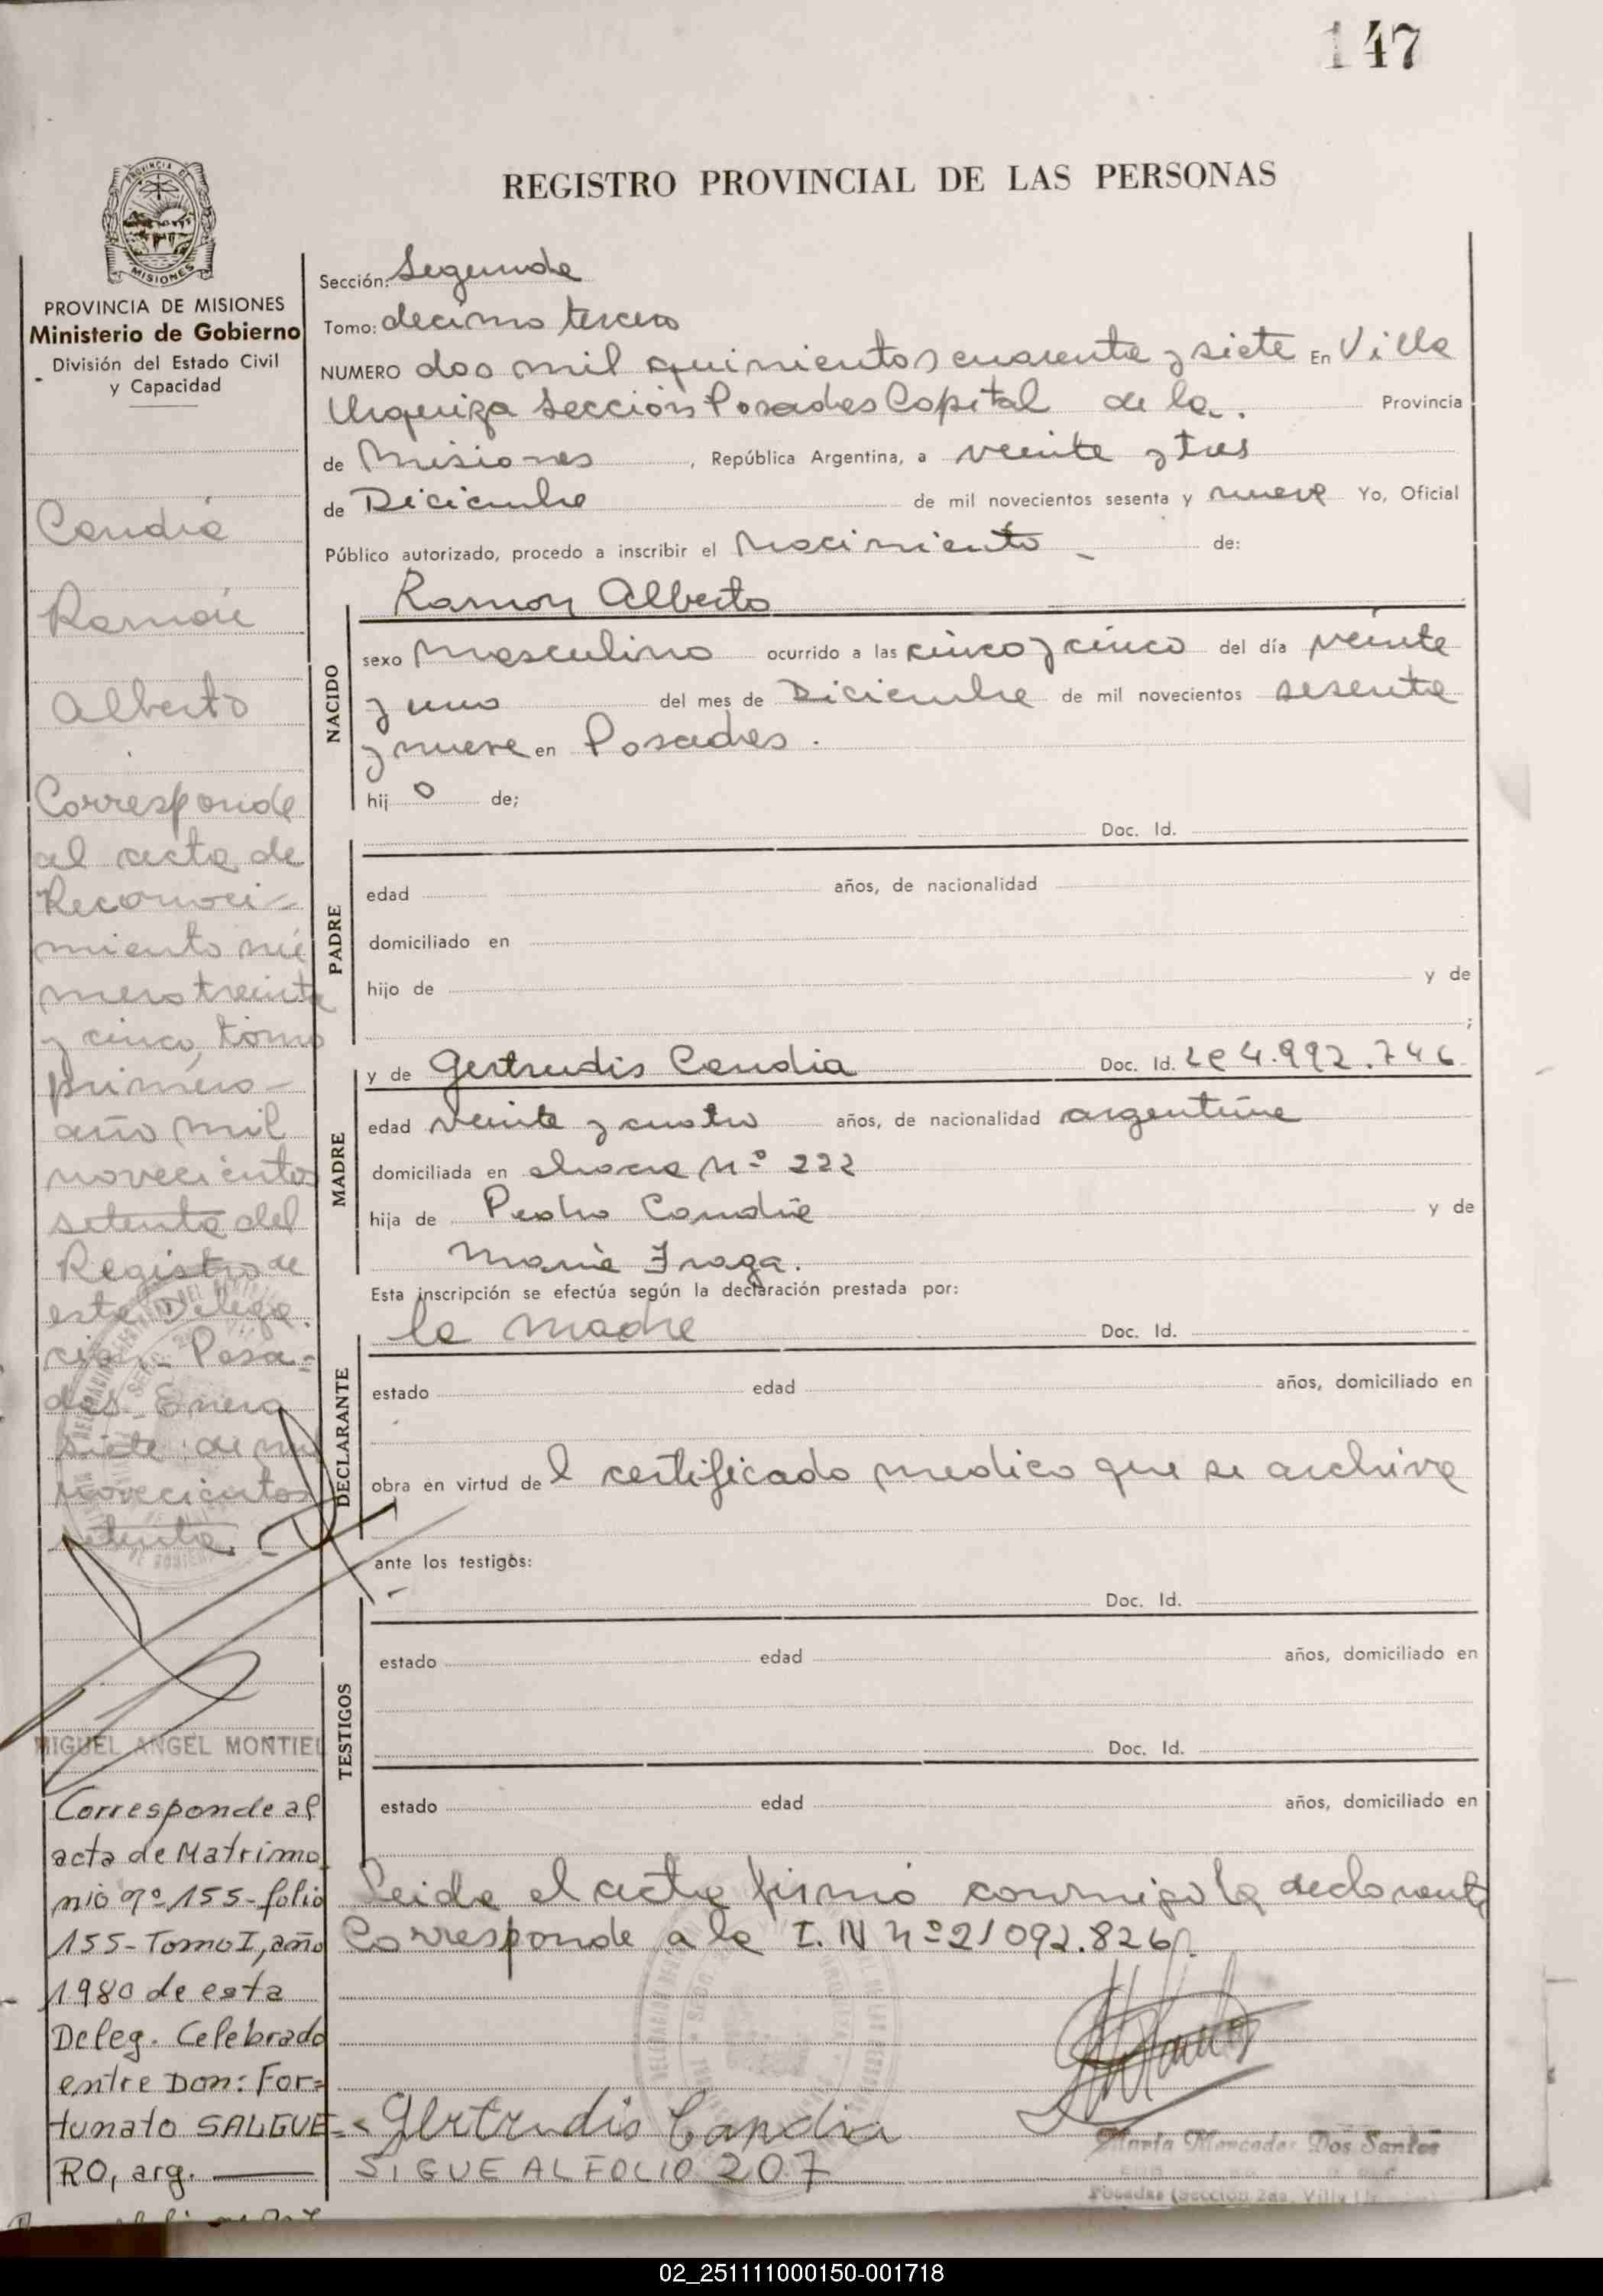 147
REGISTRO PROVINCIAL DE LAS PERSONAS
PROVINCIA DE MISIONES
Ministerio de Gobierno
División del Estado Civil
y Capacidad
Candia
Ramón
Alberto
Corresponde
al acta de
Reconoci-
miento nú
mero treinta
y cinco, tomo
primero-
año mil
novecientos
setenta del
Registro de
esta Delega
cion - Posa-
das - Enero
siete de mil
novecientos
setenta. -
MIGUEL ANGEL MONTIEL
Corresponde al
acta de Matrimo
nio nº 155 - folio
155 - Tomo I, año
1980 de esta
Deleg. Celebrado
entre Don: For=
tunato SALGUE=
RO, arg.
Sección: Segunda
Tomo: decimo tercero
NUMERO dos mil quinientos cuarenta y siete En Villa
Urquiza Seccion Posadas Capital de la. Provincia
de Misiones, República Argentina, a veinte y tres
de Diciembre de mil novecientos sesenta y nueve Yo, Oficial
Público autorizado, procedo a inscribir el Nacimiento - de:
Ramon Alberto
NACIDO
sexo Masculino ocurrido a las cinco y cinco del día veinte
y uno del mes de Diciembre de mil novecientos sesenta
y nueve en Posadas.
hij o de;
Doc. Id.
PADRE
edad años, de nacionalidad
domiciliado en
hijo de y de
;
MADRE
y de Gertrudis Candia Doc. Id. Lc 4.992.746
edad veinte y cuatro años, de nacionalidad argentina
domiciliada en chacra Nº 222
hija de Pedro Candia y de
Maria Fraga.
Esta inscripción se efectúa según la declaración prestada por:
la madre Doc. Id.
DECLARANTE
estado edad años, domiciliado en
obra en virtud de l certificado medico que se archiva
ante los testigos:
Doc. Id.
TESTIGOS
estado edad años, domiciliado en
Doc. Id.
estado edad años, domiciliado en
Leida el acta firmó conmigo la declarante
Corresponde a la I. N nº 21092.826
Gertrudis Candia
SIGUE AL FOLIO 207
Maria Mercedes Dos Santos
Posadas (Sección 2da. Villa
02_251111000150-001718